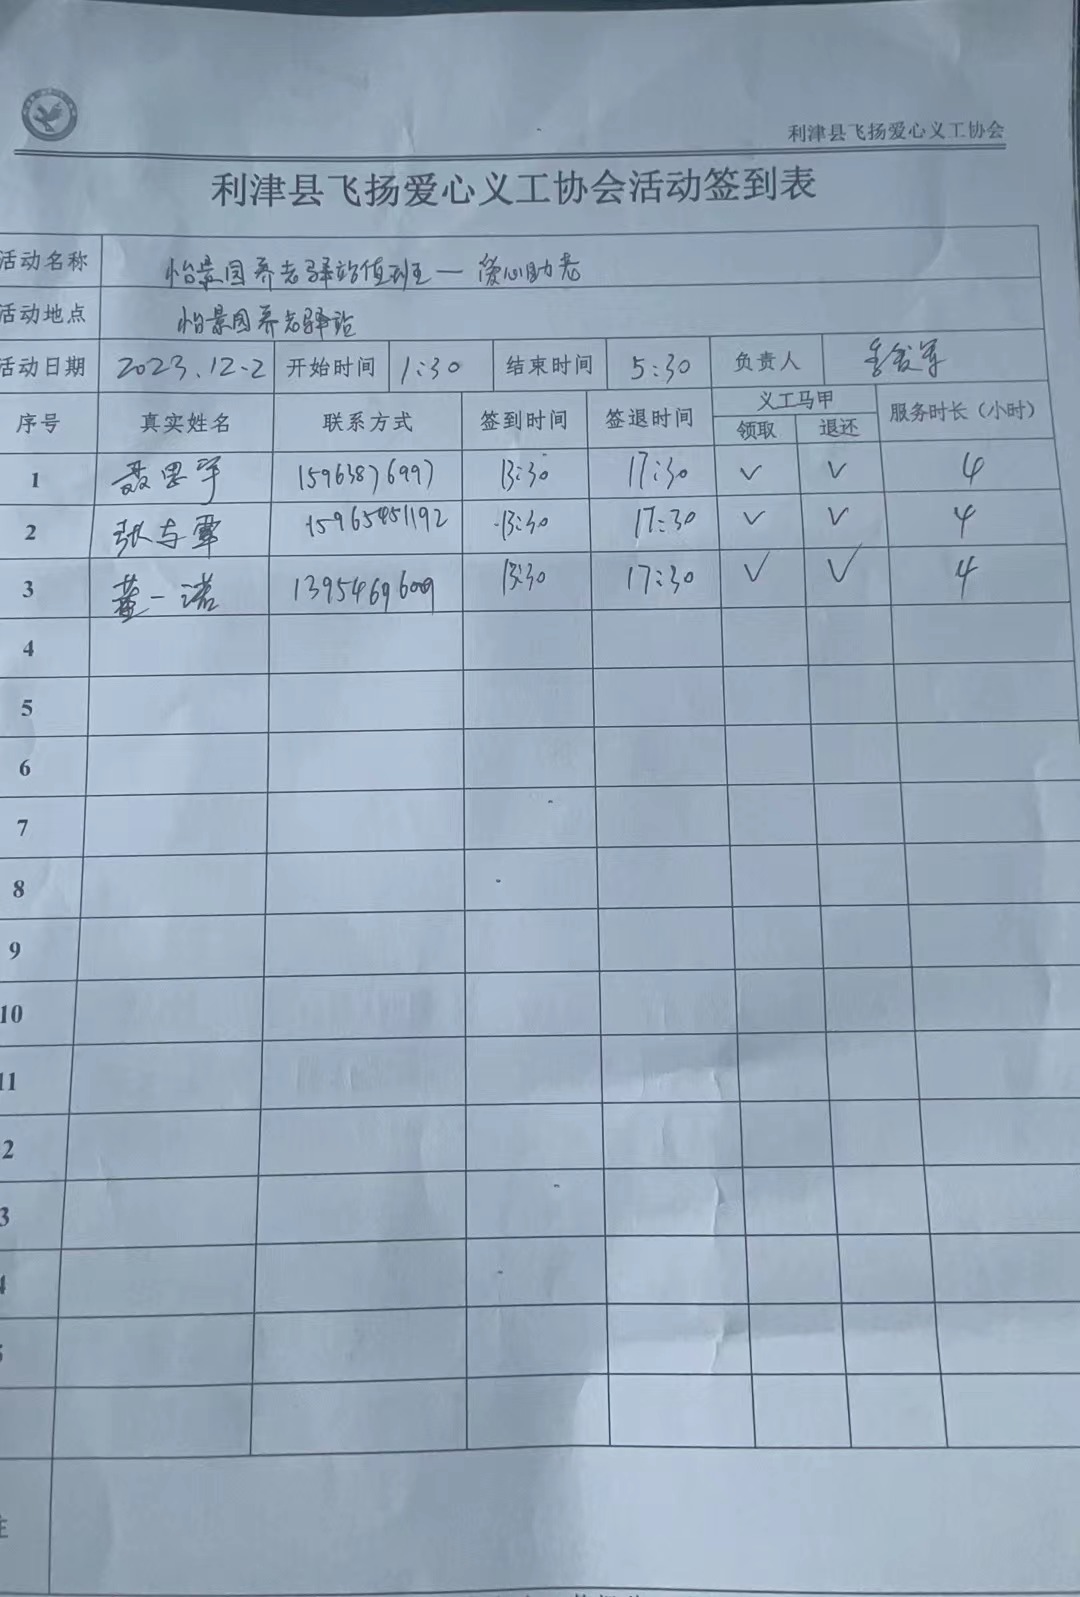 利津县飞扬爱心义工协会
利津县飞扬爱心义工协会活动签到表
活动名称 怡景园养老驿站值班—爱心助老
活动地点 怡景园养老驿站
活动日期 2023.12.2 开始时间 1:30 结束时间 5:30 负责人
序号 真实姓名 联系方式 签到时间 签退时间 义工马甲 服务时长（小时）
领取 退还
1 聂思宇 15963876997 13:30 17:30 √ √ 4
2 张与 15965451192 13:30 17:30 √ √ 4
3 董一诺 13954696009 13:30 17:30 √ √ 4
4
5
6
7
8
9
10
11
2
3
4
5
注